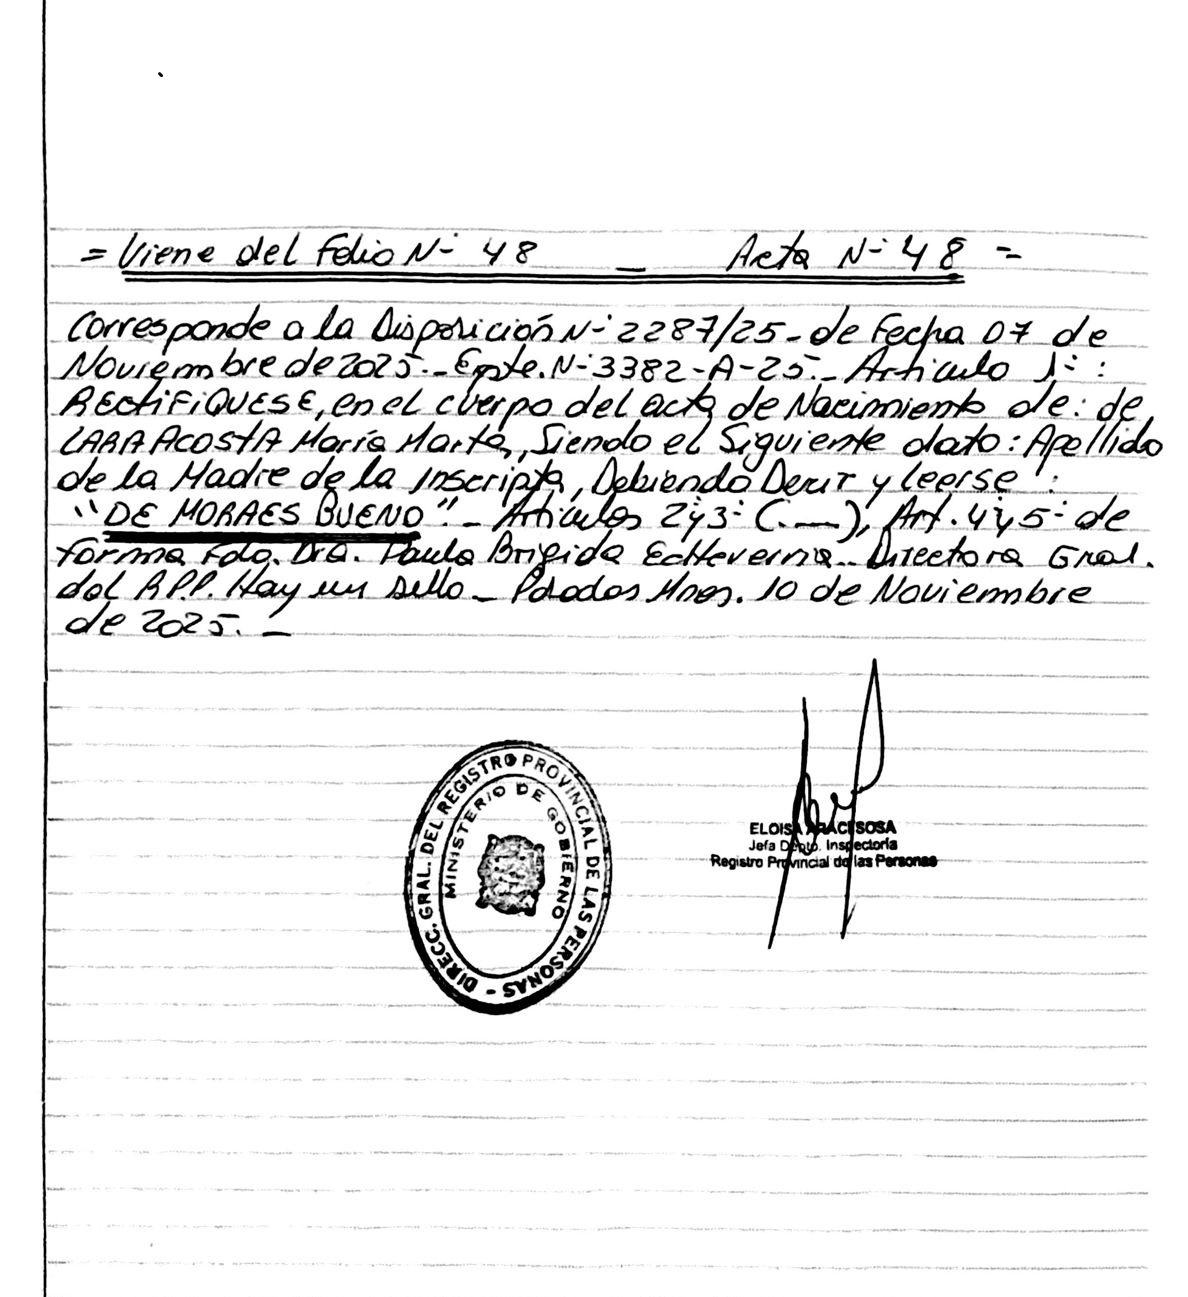 = Viene del Folio N- 48 _ Acta N- 48 =
Corresponde a la Disposición N- 2287/25 - de Fecha 07 de
Noviembre de 2025.- Expte. N- 3382-A-25.- Articulo 1- :
RECtiFiQUESE, en el cuerpo del acta de Nacimiento de: de
LARA ACOSTA María Marta, Siendo el Siguiente dato: Apellido
de la Madre de la Inscripta, Debiendo Decir y Leerse :
"DE MORAES BUENO".- Articulos 2y3- (.__), Art. 4y5- de
forma Fdo. Dra. Paula Brigida Echeverria.. Directora Gral.
del RPP. Hay un sello - Posadas Mnes. 10 de Noviembre
de 2025. -
DIRECC. GRAL. DEL REGISTRO PROVINCIAL DE LAS PERSONAS -
MINISTERIO DE GOBIERNO
ELOISA SOSA
Jefa Dpto. Inspectoría
Registro Provincial de las Personas